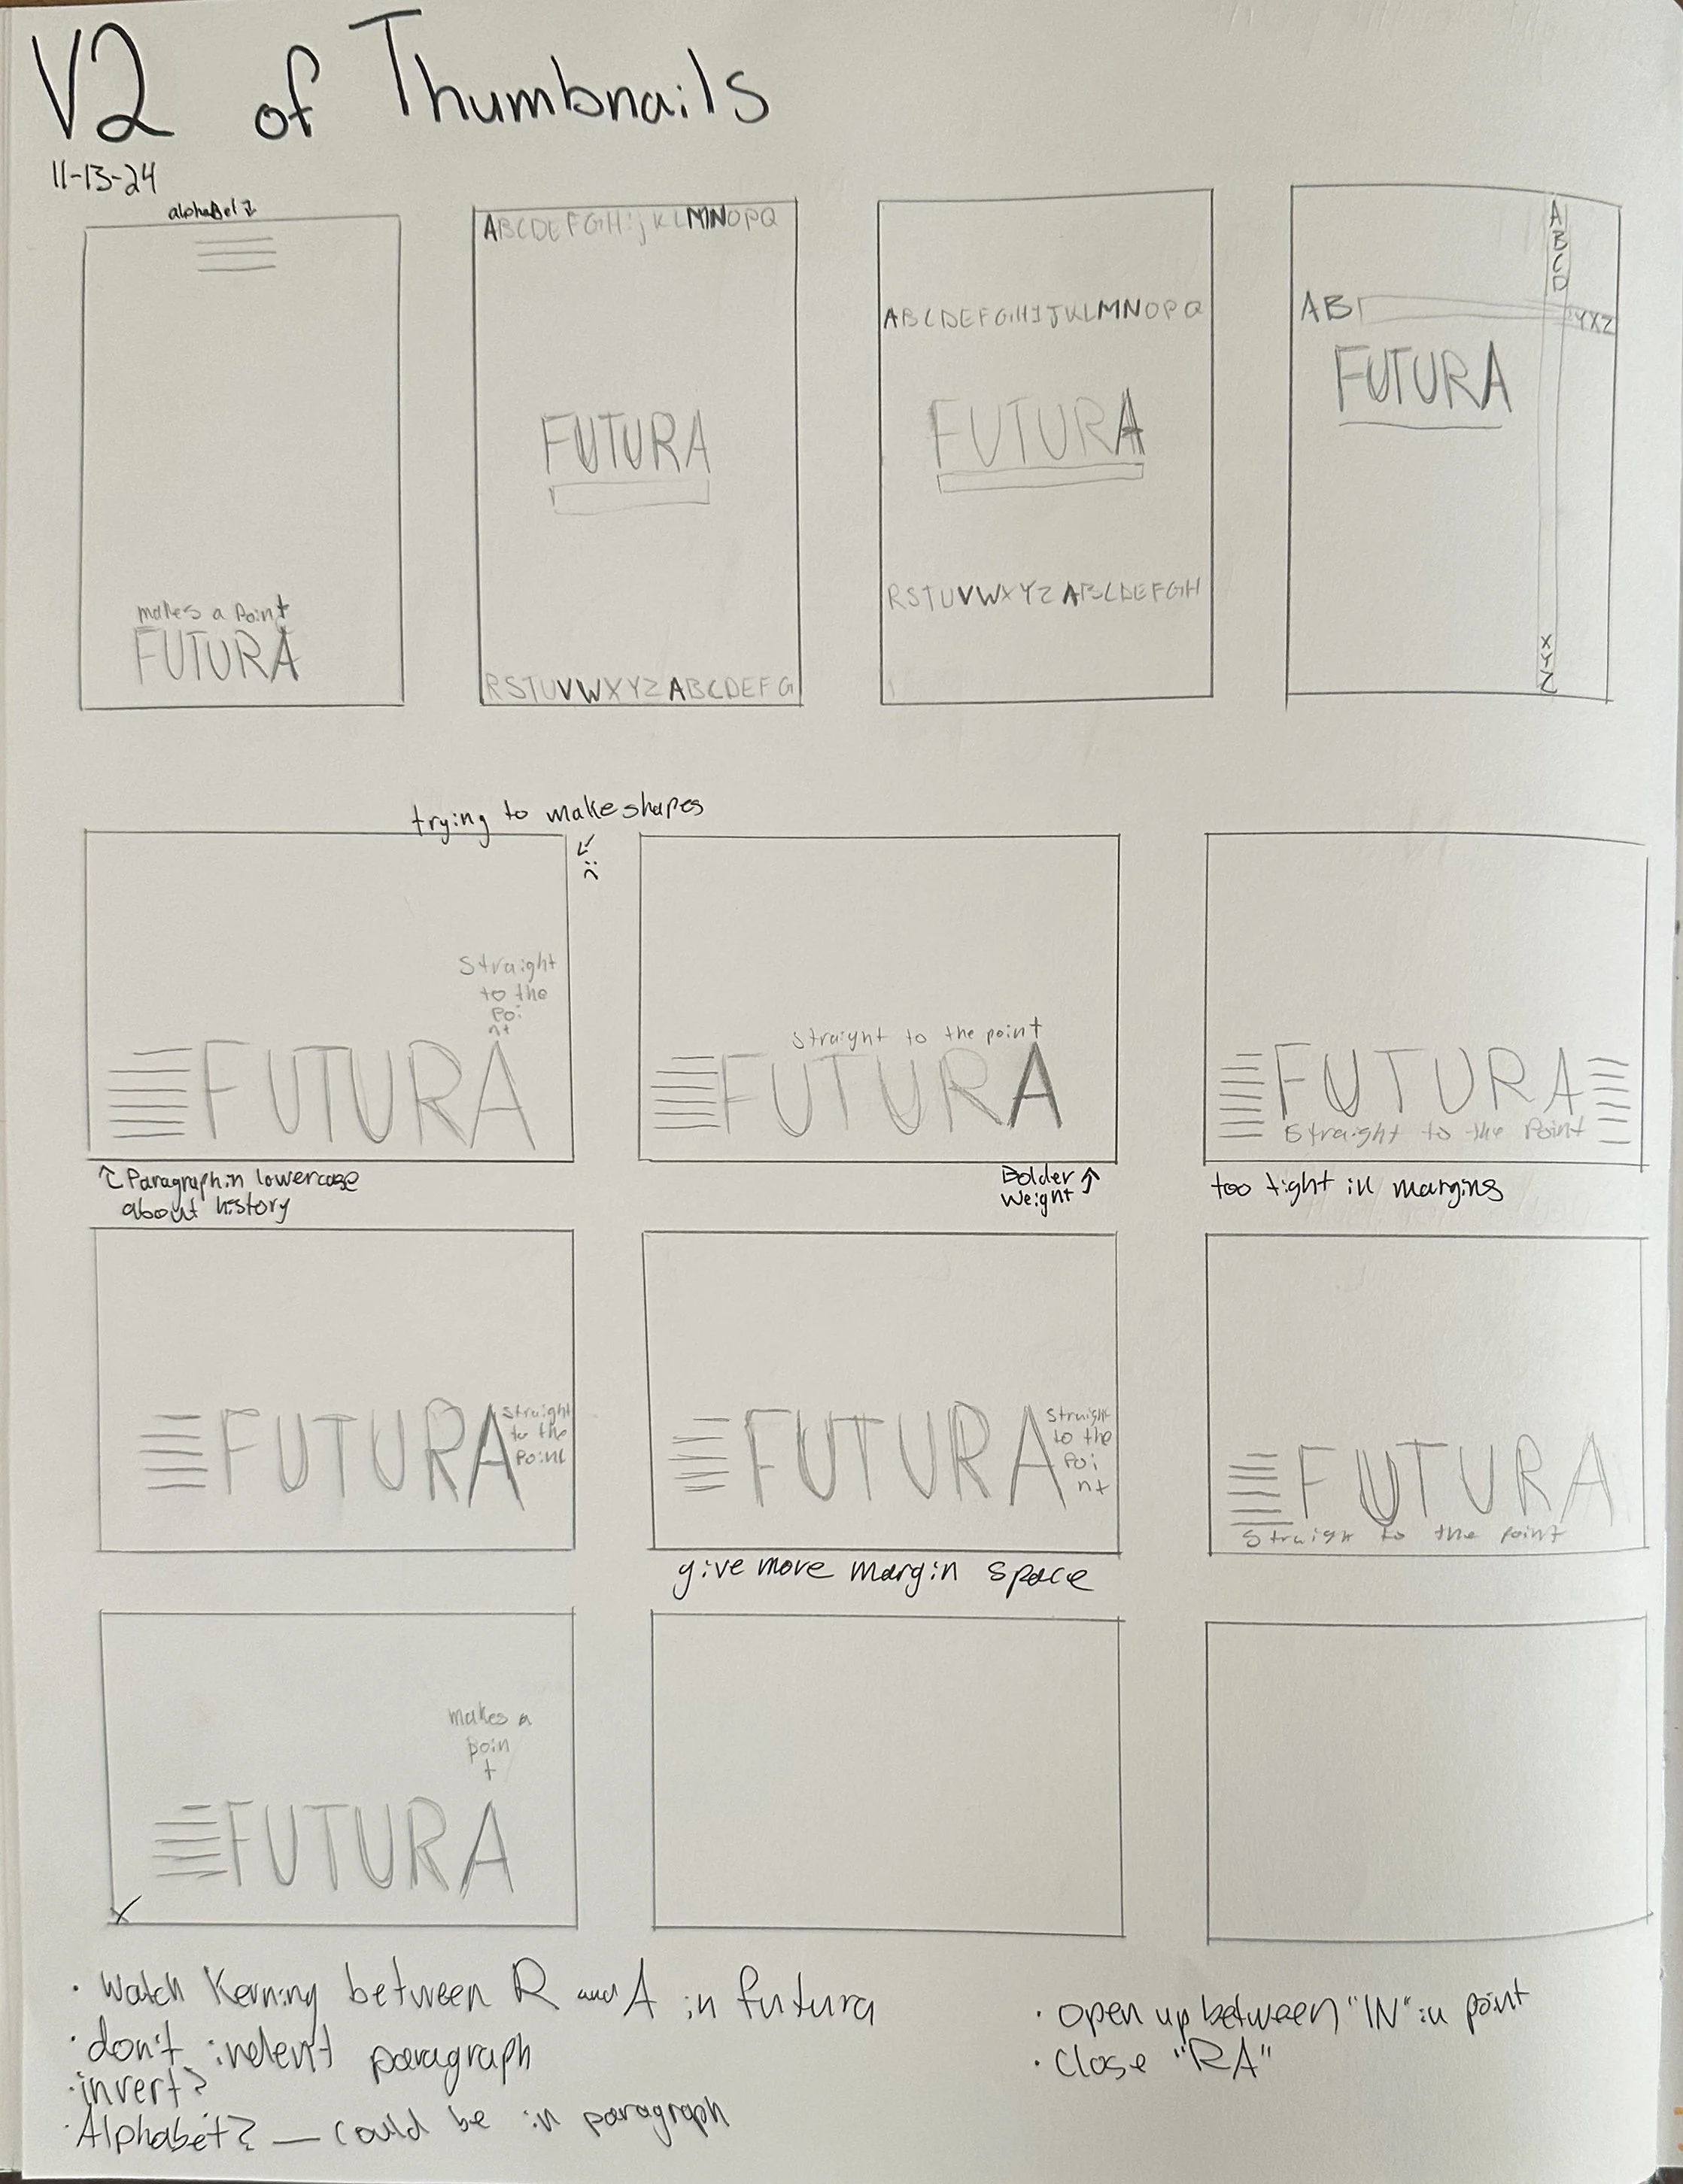 V2 of Thumbnails
11-13-24
alphabet
makes a point
FUTURA
ABCDEFGHijKLMNOPQ
FUTURA
RSTUVWXYZABCDEFG
ABCDEFGHIJKLMNOPQ
FUTURA
RSTUVWXYZABCDEFGH
A
B
C
D
AB
YXZ
FUTURA
X
Y
Z
trying to make shapes
Straight
to the
Poi
nt
FUTURA
Paragraph in lowercase
about history
Straight to the point
FUTURA
Bolder
Weight
FUTURA
Straight to the Point
too tight in margins
FUTURA
Straight
to the
Point
FUTURA
Straight
to the
Poi
nt
give more margin space
FUTURA
Straigh to the point
makes a
poin
t
FUTURA
· Watch Kerning between R and A in futura
· don't indent paragraph
· invert?
· Alphabet? — could be in paragraph
· open up between "IN" in point
· Close "RA"